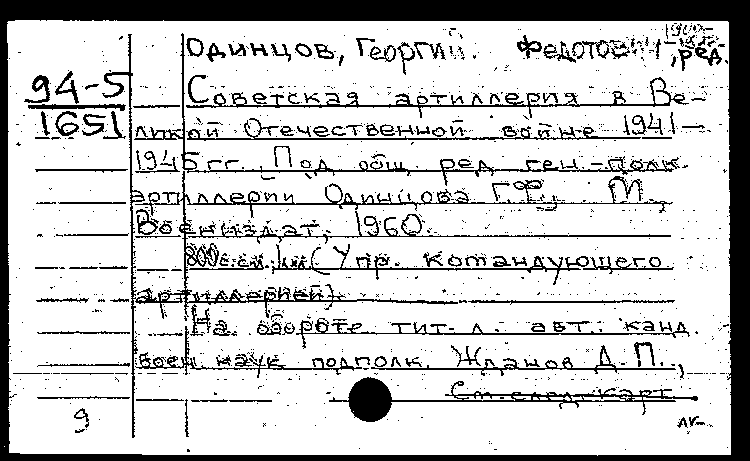 Одинцов, Георгий Федотович, ред.
94-5
1651
Советская артиллерия в Ве-
ликой Отечественной войне 1941-
1945 гг. Под общ. ред. ген.-полк.
артиллерии Одинцова Г.Ф. М.,
Воениздат, 1960.
800 с. (Упр. командующего
артиллерией).
На обороте тит. л. авт.: канд.
воен. наук подполк. Жданов Д.П.,
См. след. карт.
9